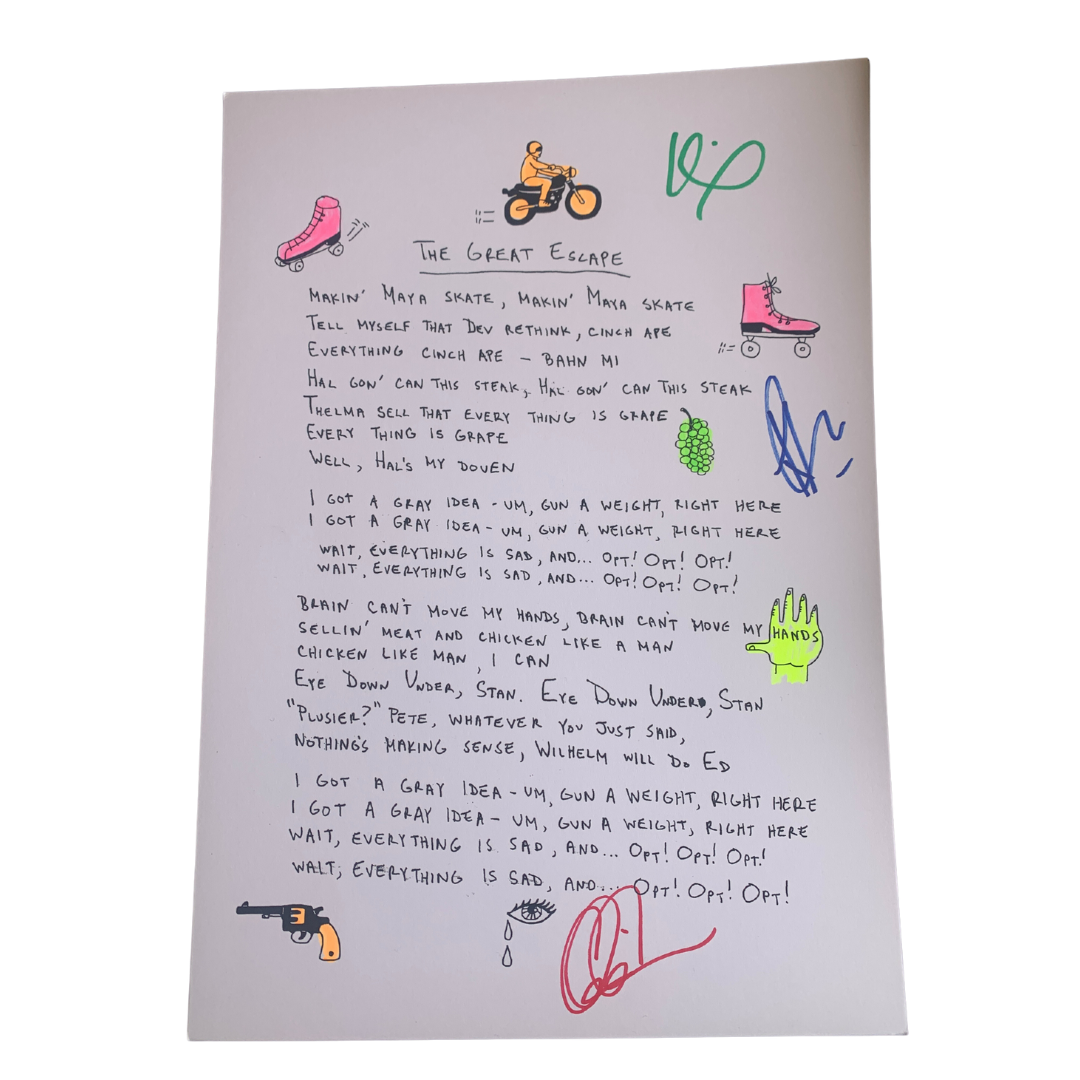 THE GREAT ESCAPE
MAKIN' MAYA SKATE, MAKIN' MAYA SKATE
TELL MYSELF THAT DEV RETHINK, CINCH APE
EVERYTHING CINCH APE – BAHN MI
HAL GON' CAN THIS STEAK, HAL GON' CAN THIS STEAK
THELMA SELL THAT EVERY THING IS GRAPE
EVERY THING IS GRAPE
WELL, HAL'S MY DOVEN
I GOT A GRAY IDEA – UM, GUN A WEIGHT, RIGHT HERE
I GOT A GRAY IDEA – UM, GUN A WEIGHT, RIGHT HERE
WAIT, EVERYTHING IS SAD, AND... OPT! OPT! OPT!
WAIT, EVERYTHING IS SAD, AND... OPT! OPT! OPT!
BRAIN CAN'T MOVE MY HANDS, BRAIN CAN'T MOVE MY HANDS
SELLIN' MEAT AND CHICKEN LIKE A MAN
CHICKEN LIKE MAN, I CAN
EYE DOWN UNDER, STAN. EYE DOWN UNDER, STAN
"PLUSIER?" PETE, WHATEVER YOU JUST SAID,
NOTHING'S MAKING SENSE, WILHELM WILL DO ED
I GOT A GRAY IDEA – UM, GUN A WEIGHT, RIGHT HERE
I GOT A GRAY IDEA – UM, GUN A WEIGHT, RIGHT HERE
WAIT, EVERYTHING IS SAD, AND... OPT! OPT! OPT!
WAIT, EVERYTHING IS SAD, AND... OPT! OPT! OPT!